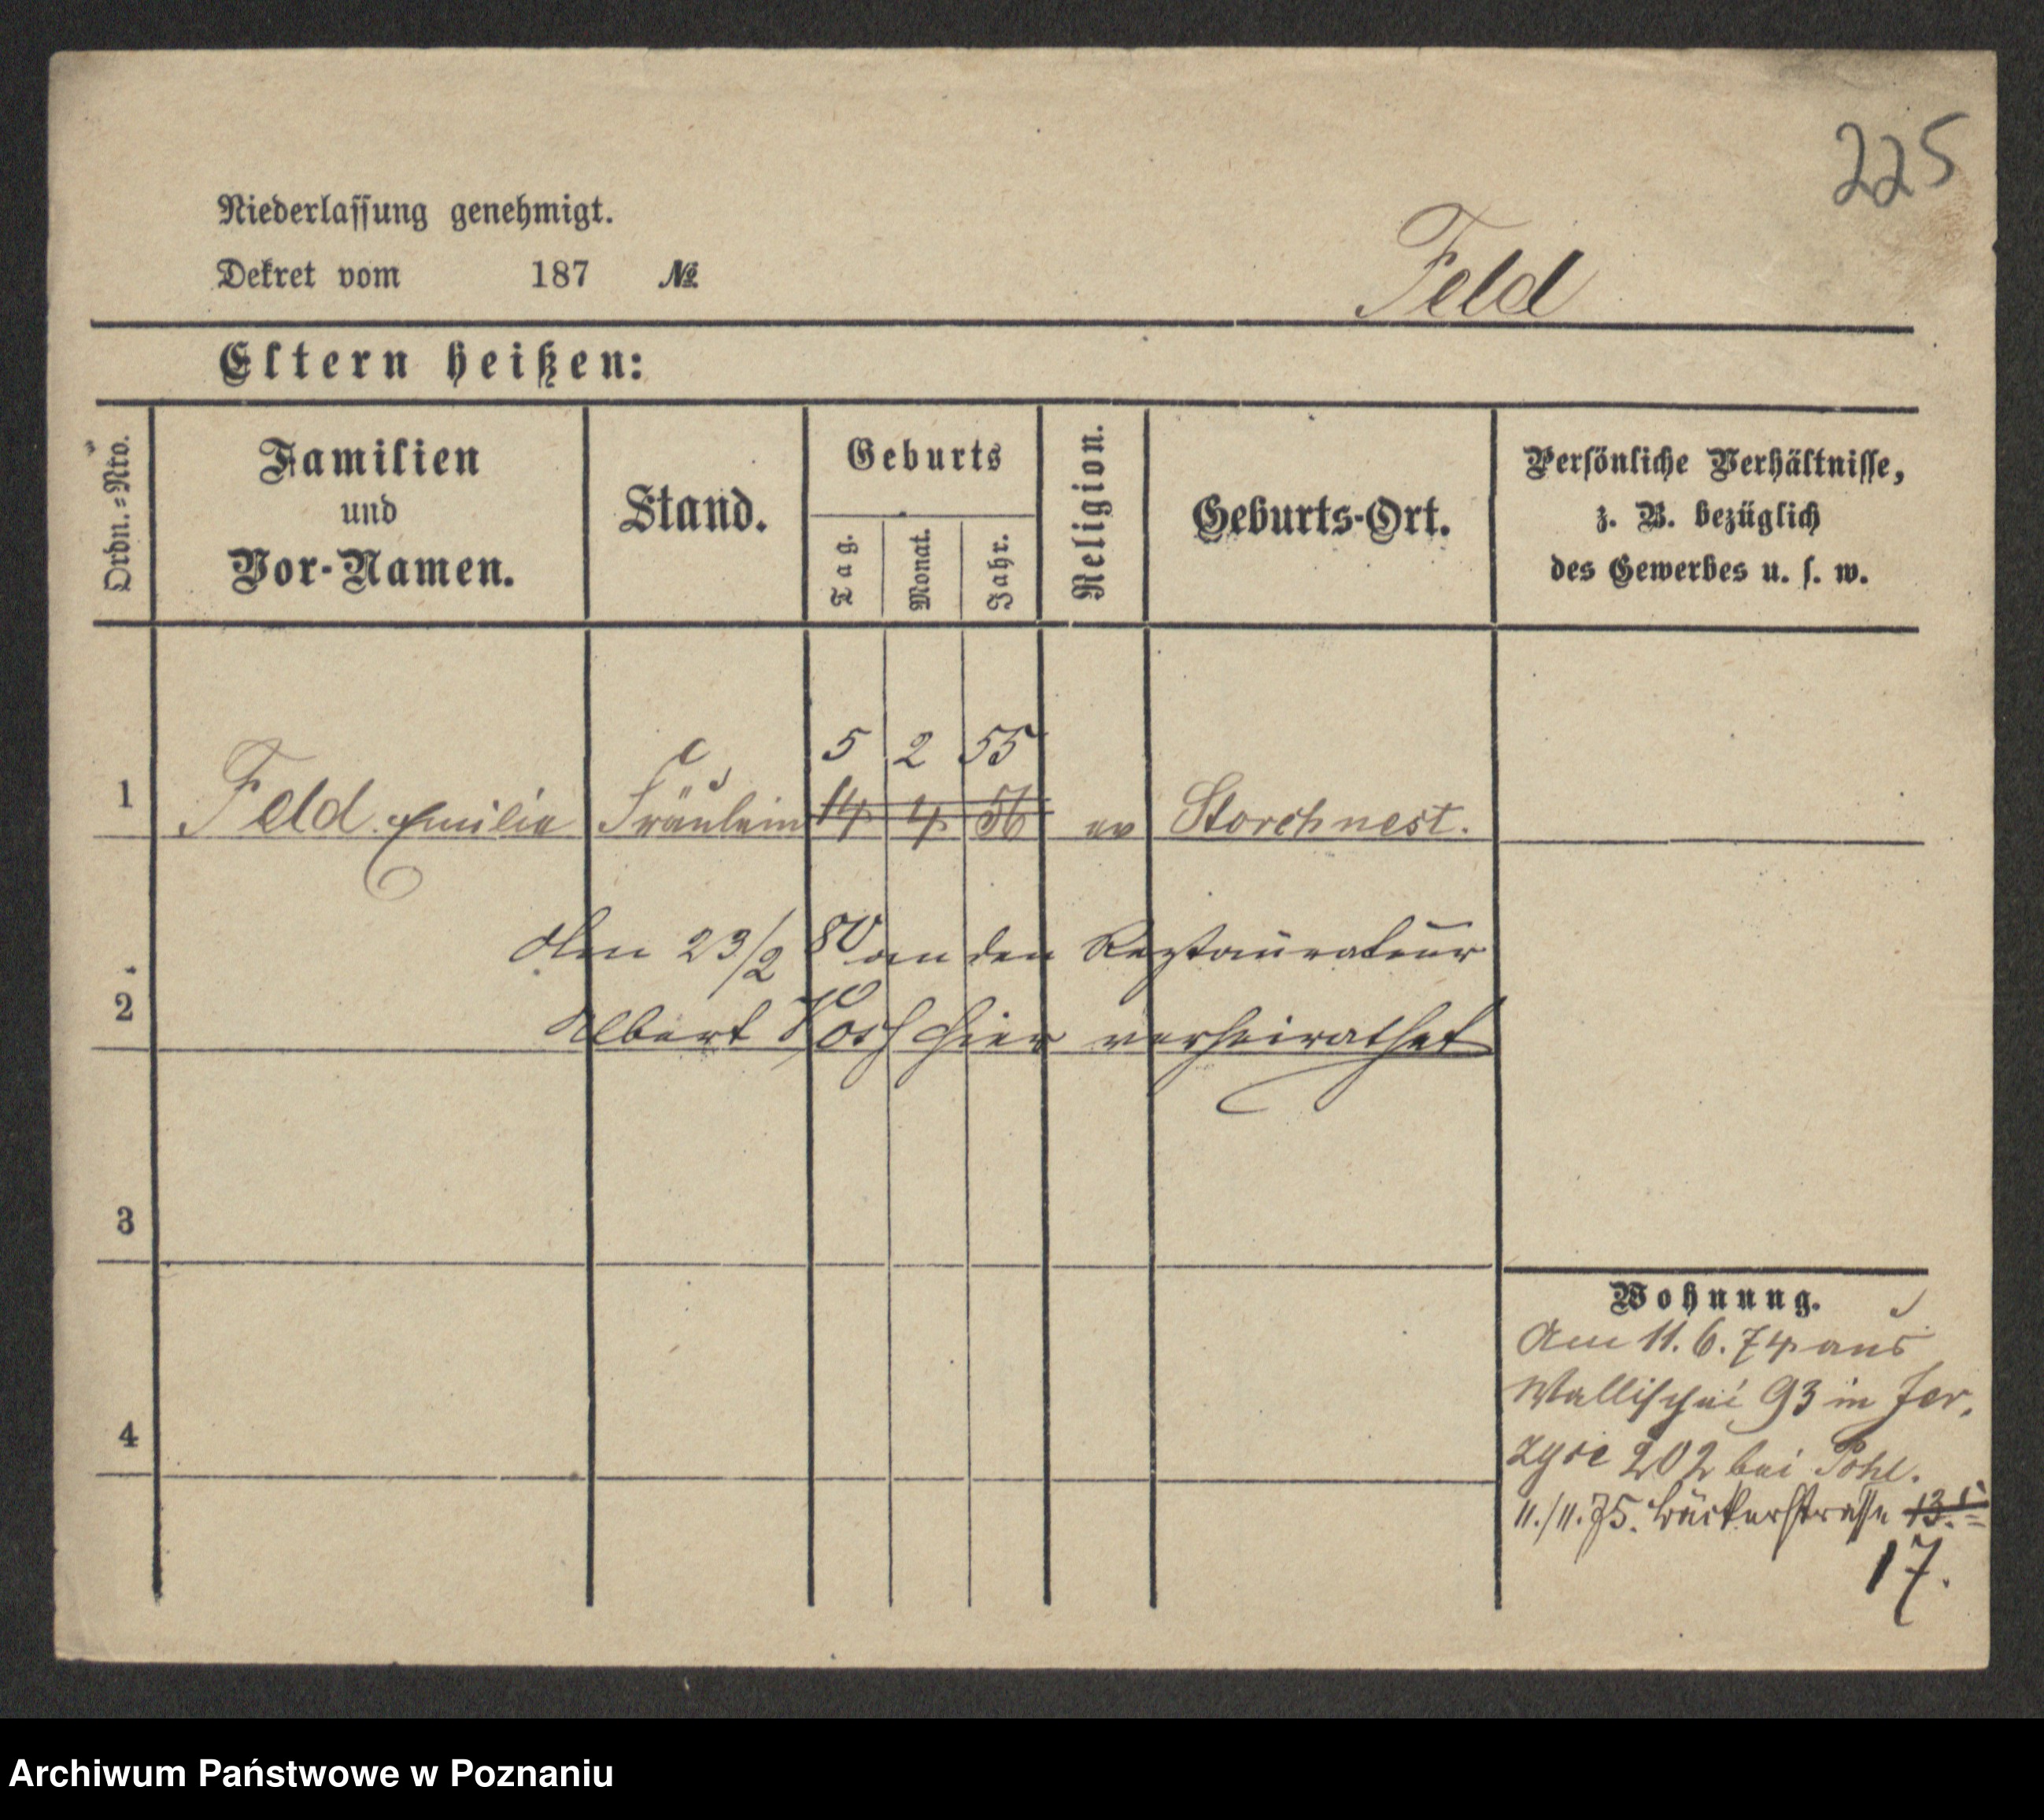 225
Niederlassung genehmigt.
Dekret vom 187 №
Feld
Eltern heißen:
Ordn.=Nro.
Familien
und
Vor-Namen.
Stand.
Geburts
Tag.
Monat.
Jahr.
Religion.
Geburts-Ort.
Persönliche Verhältnisse,
z. B. bezüglich
des Gewerbes u. s. w.
5 2 55
1 Feld Emilie Fräulein 14 4 56 ev Storchnest.
den 23/2 80 an den Restaurateur
2 Albert hier verheirathet
3
Wohnung.
Am 11. 6. 74 aus
Wallischei 93 in Jer,
zyce 202 bei Pohl.
4
11./11. 75. Bäckerstrasse 13.
17.
Archiwum Państwowe w Poznaniu